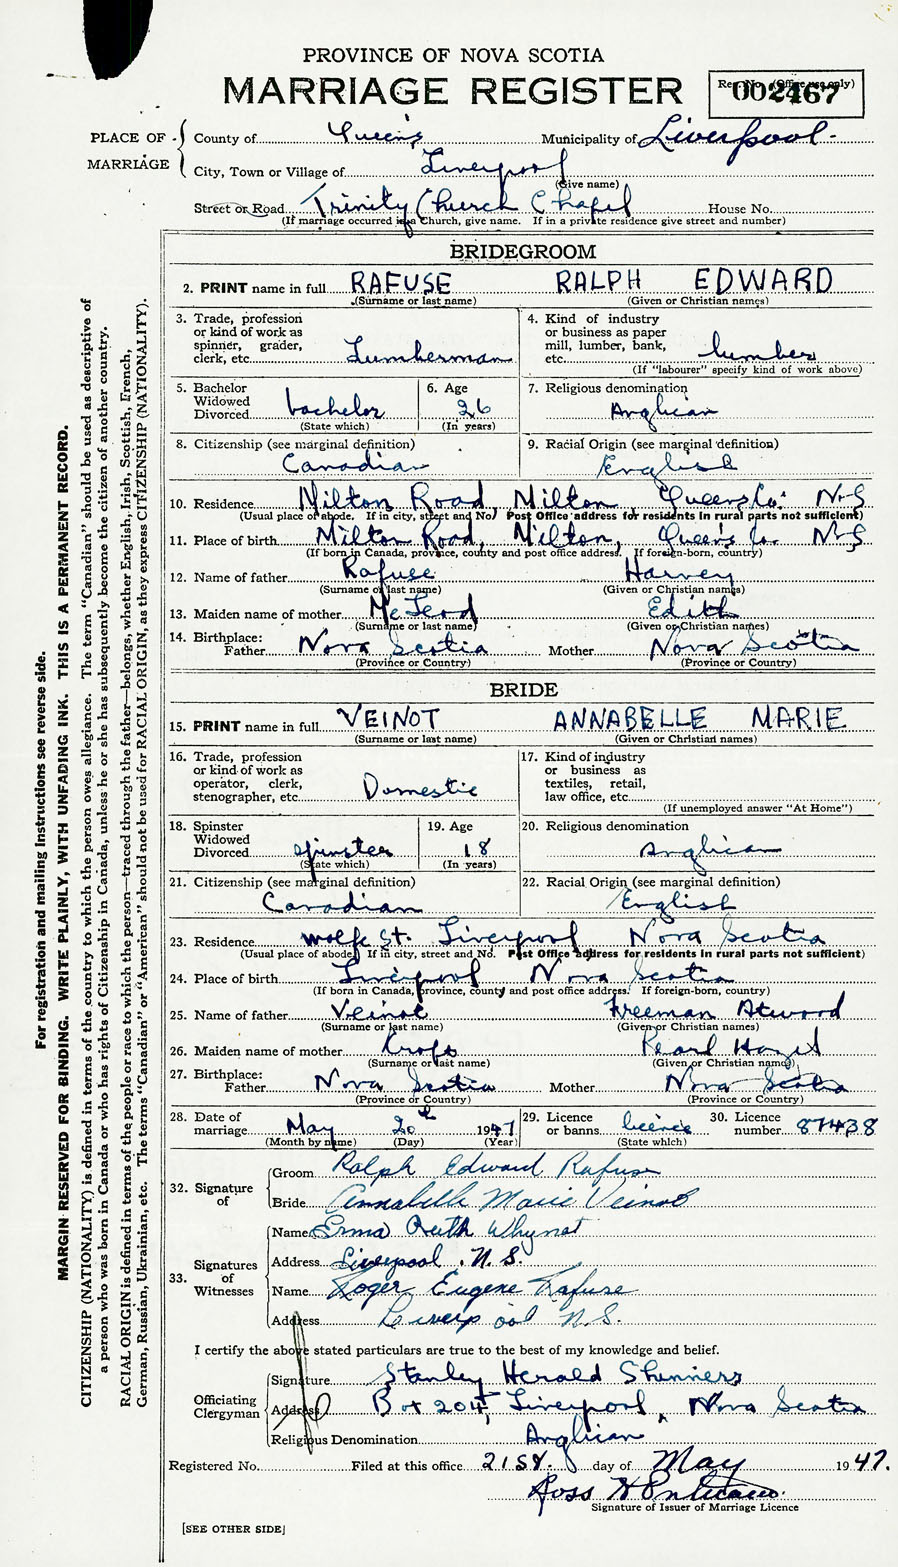 PROVINCE OF NOVA SCOTIA
MARRIAGE REGISTER
Reg. No. (Office use only)
002467
PLACE OF MARRIAGE
County of Queen's Municipality of Liverpool
City, Town or Village of Liverpool
(Give name)
Street or Road Trinity Church Chapel House No.
(If marriage occurred in a Church, give name. If in a private residence give street and number)
BRIDEGROOM
2. PRINT name in full RAFUSE RALPH EDWARD
(Surname or last name) (Given or Christian names)
3. Trade, profession or kind of work as spinner, grader, clerk, etc. Lumberman
4. Kind of industry or business as paper mill, lumber, bank, etc. lumber
(If "labourer" specify kind of work above)
5. Bachelor Widowed Divorced bachelor
(State which)
6. Age 26
(In years)
7. Religious denomination Anglican
8. Citizenship (see marginal definition) Canadian
9. Racial Origin (see marginal definition) English
10. Residence Milton Road, Milton Queens Co. N.S
(Usual place of abode. If in city, street and No. Post Office address for residents in rural parts not sufficient)
11. Place of birth Milton Road, Milton, Queen's Co. N.S
(If born in Canada, province, county and post office address. If foreign-born, country)
12. Name of father Rafuse Harvey
(Surname or last name) (Given or Christian names)
13. Maiden name of mother McLeod Edith
(Surname or last name) (Given or Christian names)
14. Birthplace: Father Nova Scotia Mother Nova Scotia
(Province or Country) (Province or Country)
BRIDE
15. PRINT name in full VEINOT ANNABELLE MARIE
(Surname or last name) (Given or Christian names)
16. Trade, profession or kind of work as operator, clerk, stenographer, etc. Domestic
17. Kind of industry or business as textiles, retail, law office, etc.
(If unemployed answer "At Home")
18. Spinster Widowed Divorced spinster
(State which)
19. Age 18
(In years)
20. Religious denomination Anglican
21. Citizenship (see marginal definition) Canadian
22. Racial Origin (see marginal definition) English
23. Residence Wolfe St. Liverpool Nova Scotia
(Usual place of abode. If in city, street and No. Post Office address for residents in rural parts not sufficient)
24. Place of birth Liverpool Nova Scotia
(If born in Canada, province, county and post office address. If foreign-born, country)
25. Name of father Veinot Freeman Atwood
(Surname or last name) (Given or Christian names)
26. Maiden name of mother Croft Pearl Hazel
(Surname or last name) (Given or Christian names)
27. Birthplace: Father Nova Scotia Mother Nova Scotia
(Province or Country) (Province or Country)
28. Date of marriage May 20th 1947
(Month by name) (Day) (Year)
29. Licence or banns licence
(State which)
30. Licence number 87438
32. Signature of
Groom Ralph Edward Rafuse
Bride Annabelle Marie Veinot
33. Signatures of Witnesses
Name Erma Ruth Whynot
Address Liverpool. N.S.
Name Roger Eugene Rafuse
Address Liverpool N.S.
I certify the above stated particulars are true to the best of my knowledge and belief.
Officiating Clergyman
Signature Stanley Herald
Address Box 204, Liverpool, Nova Scotia
Religious Denomination Anglican
Registered No. Filed at this office 21st. day of May 1947.
Ross H
Signature of Issuer of Marriage Licence
[SEE OTHER SIDE]
For registration and mailing instructions see reverse side.
MARGIN RESERVED FOR BINDING. WRITE PLAINLY, WITH UNFADING INK. THIS IS A PERMANENT RECORD.
CITIZENSHIP (NATIONALITY) is defined in terms of the country to which the person owes allegiance. The term "Canadian" should be used as descriptive of
a person who was born in Canada or who has rights of Citizenship in Canada, unless he or she has subsequently become the citizen of another country.
RACIAL ORIGIN is defined in terms of the people or race to which the person—traced through the father—belongs, whether English, Irish, Scottish, French,
German, Russian, Ukrainian, etc. The terms "Canadian" or "American" should not be used for RACIAL ORIGIN, as they express CITIZENSHIP (NATIONALITY).